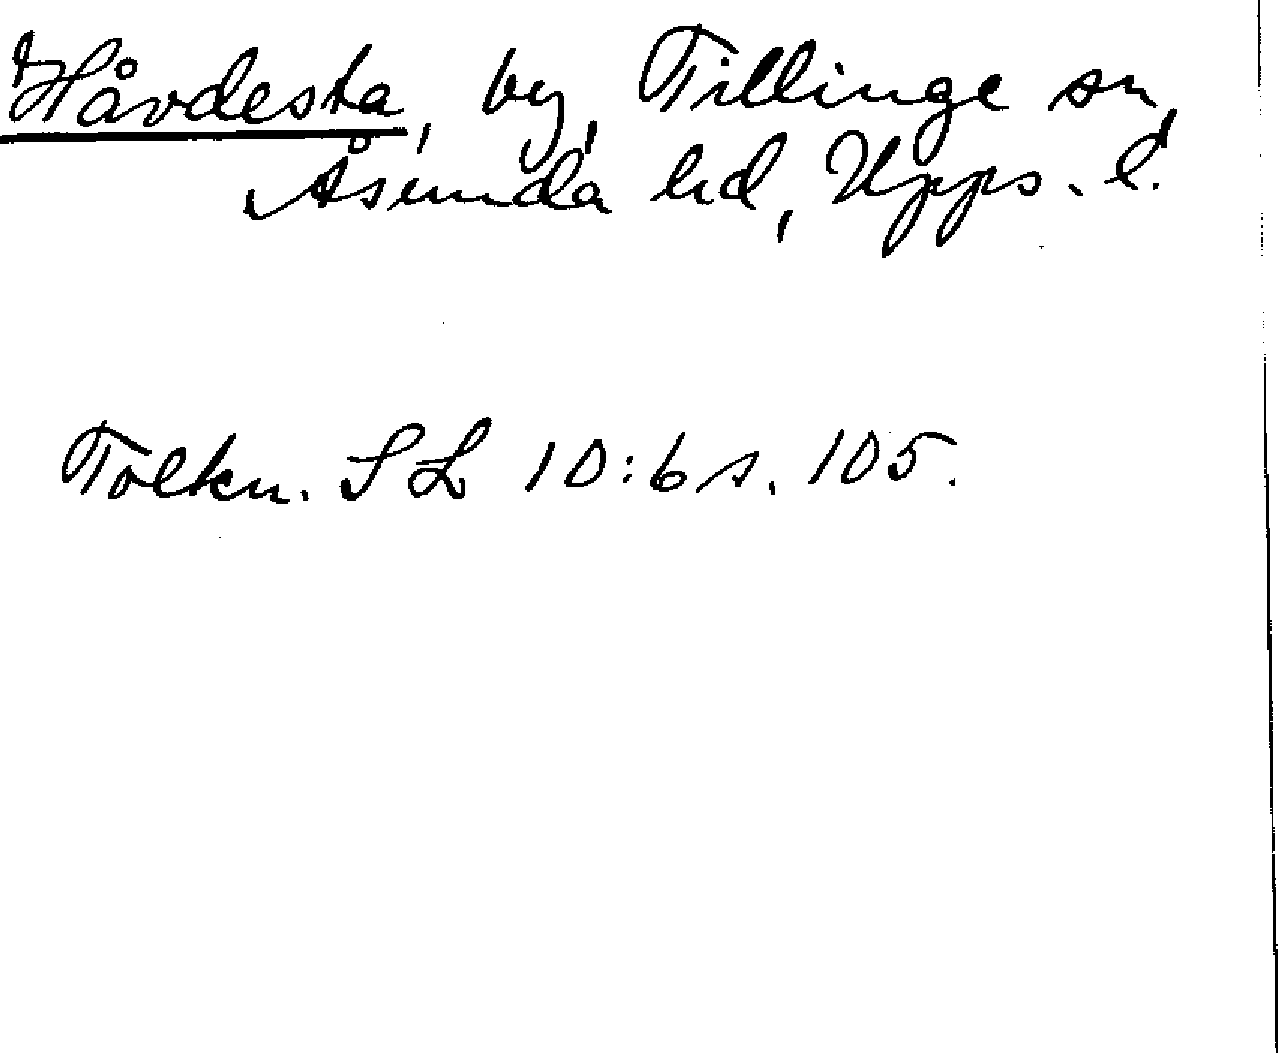 Håvdesta, by, Tillinge sn,
Åsunda hd, Upps. l.
Tolkn. SL 10:6 s. 105.